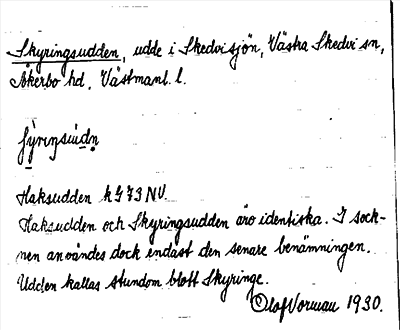 Skyringsudden, udde i Skedvisjön, Västra Skedvi sn,
Åkerbo hd, Västmanl. l.
Haksudden k G 73 NV.
Haksudden och Skyringsudden äro identiska. I sock-
nen användes dock endast den senare benämningen.
Udden kallas stundom blott Skyringe.
Olof Vorman 1930.